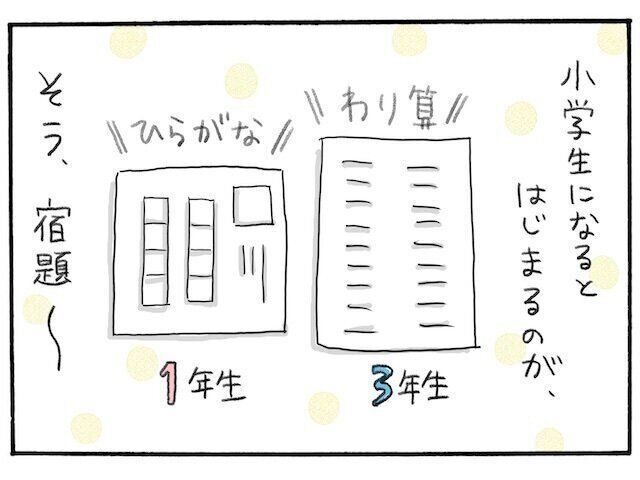 小学生になると
はじまるのが、
\\わり算//
3年生
\\ひらがな//
1年生
そう、宿題〜